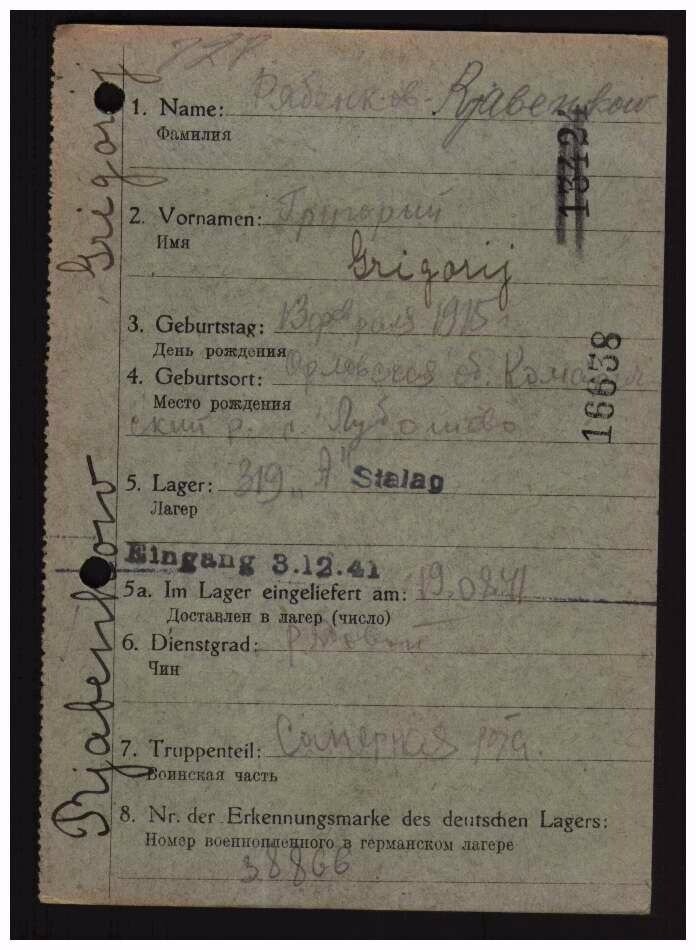 728
1. Name: Рябенков - Rjabenkow
Фамилия
13424
2. Vornamen: Григорий
Имя
Grigorij
3. Geburtstag: 13 февраля 1915 г.
День рождения
4. Geburtsort: Орловская об. Комарич
Место рождения
ский р. с.
16658
5. Lager: 319 "A" Stalag
Лагер
Eingang 3.12.41
5a. Im Lager eingeliefert am: 19.08.41
Доставлен в лагер (число)
6. Dienstgrad: рядовой
Чин
7. Truppenteil: Саперная рота.
Воинская часть
8. Nr. der Erkennungsmarke des deutschen Lagers:
Номер военнопленного в германском лагере
38866
Rjabenkow Grigorij